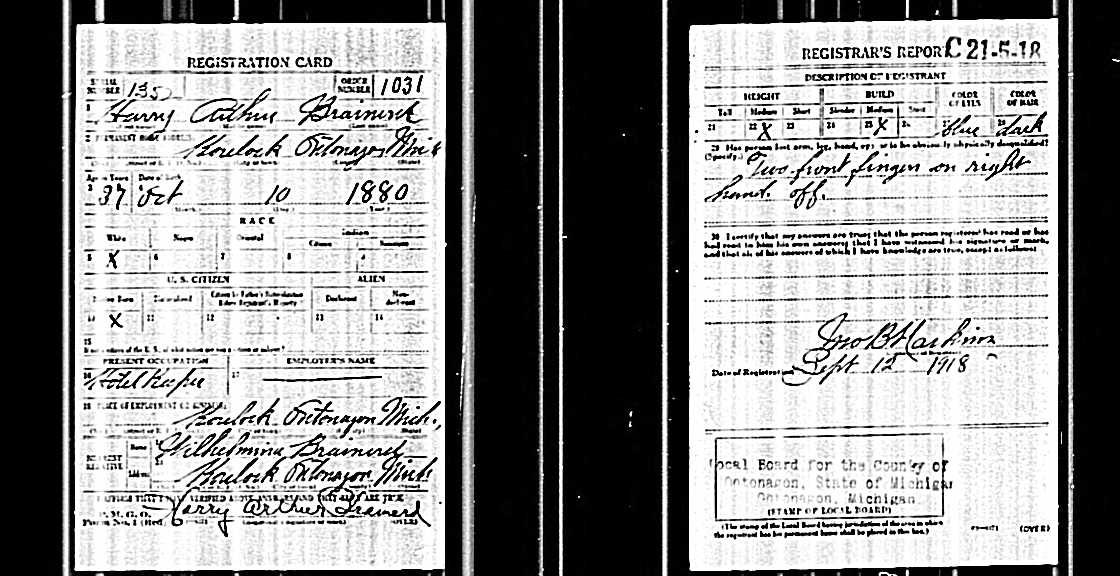 REGISTRATION CARD
SERIAL NUMBER 1352 ORDER NUMBER 1031
1 Harry Arthur Brainerd
2 PERMANENT HOME ADDRESS:
Rorelock Ontonagon Mich
Age in Years Date of Birth
3 37 Oct 10 1880
RACE
White Negro Oriental Indian
Citizen
5 X 6 7 8 9
U. S. CITIZEN ALIEN
Native Born Naturalized Citizen by Father's Naturalization Before Registrant's Majority Declarant Non-declarant
10 X 11 12 13 14
15
If not a citizen of the U. S., of what nation are you a citizen or subject?
PRESENT OCCUPATION EMPLOYER'S NAME
16 Hotel Keeper 17
18 PLACE OF EMPLOYMENT OR BUSINESS:
Rorelock Ontonagon Mich.,
NEAREST RELATIVE Name Wilhelmina Brainerd
Address Rorelock Ontonagon Mich
I AFFIRM THAT I HAVE VERIFIED ABOVE ANSWERS AND THAT THEY ARE TRUE
Harry Arthur Brainerd
P. M. G. O.
Form No. 1 (Red) (OVER)
REGISTRAR'S REPORT C 21-5-18
DESCRIPTION OF REGISTRANT
HEIGHT BUILD COLOR OF EYES COLOR OF HAIR
Tall Medium Short Slender Medium Stout
21 22 X 23 24 25 X 26 27 blue 28 dark
29 Has person lost arm, leg, hand, eye, or is he obviously physically disqualified?
(Specify.) Two front fingers on right
hand off.
30 I certify that my answers are true; that the person registered has read or has
had read to him his own answers; that I have witnessed his signature or mark,
and that all of his answers of which I have knowledge are true, except as follows:
Jno B Harkinson
Date of Registration Sept 12 1918
Local Board for the County of
Ontonagon, State of Michigan
Ontonagon, Michigan
(STAMP OF LOCAL BOARD)
(The stamp of the Local Board having jurisdiction of the area in which
the registrant has his permanent home shall be placed in this box.)
(OVER)